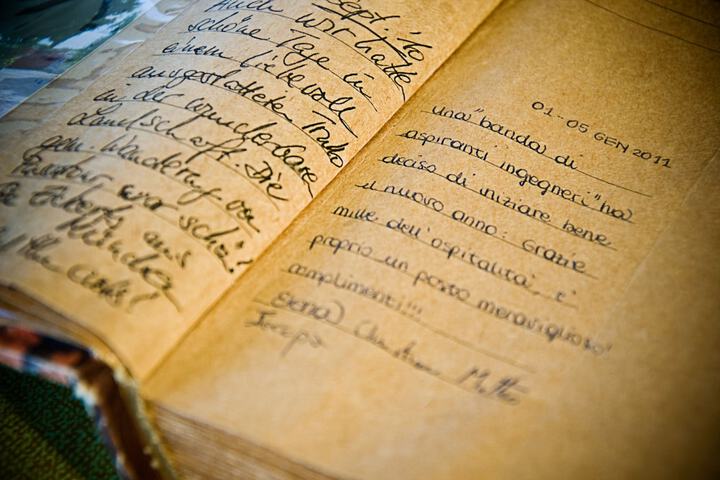 Sept. '10
Auch wir hatten
schöne Tage in
einem liebevoll
ausgestatteten Trullo
in der wunderbaren
Landschaft. Die
gem. Wanderung von
war schön!
aus
01-05 GEN 2011
una "banda" di
aspiranti ingegneri "ha
deciso di iniziare bene
il nuovo anno: Grazie
mille dell'ospitalità, è
proprio un posto meraviglioso!
complimenti!!!
Elena